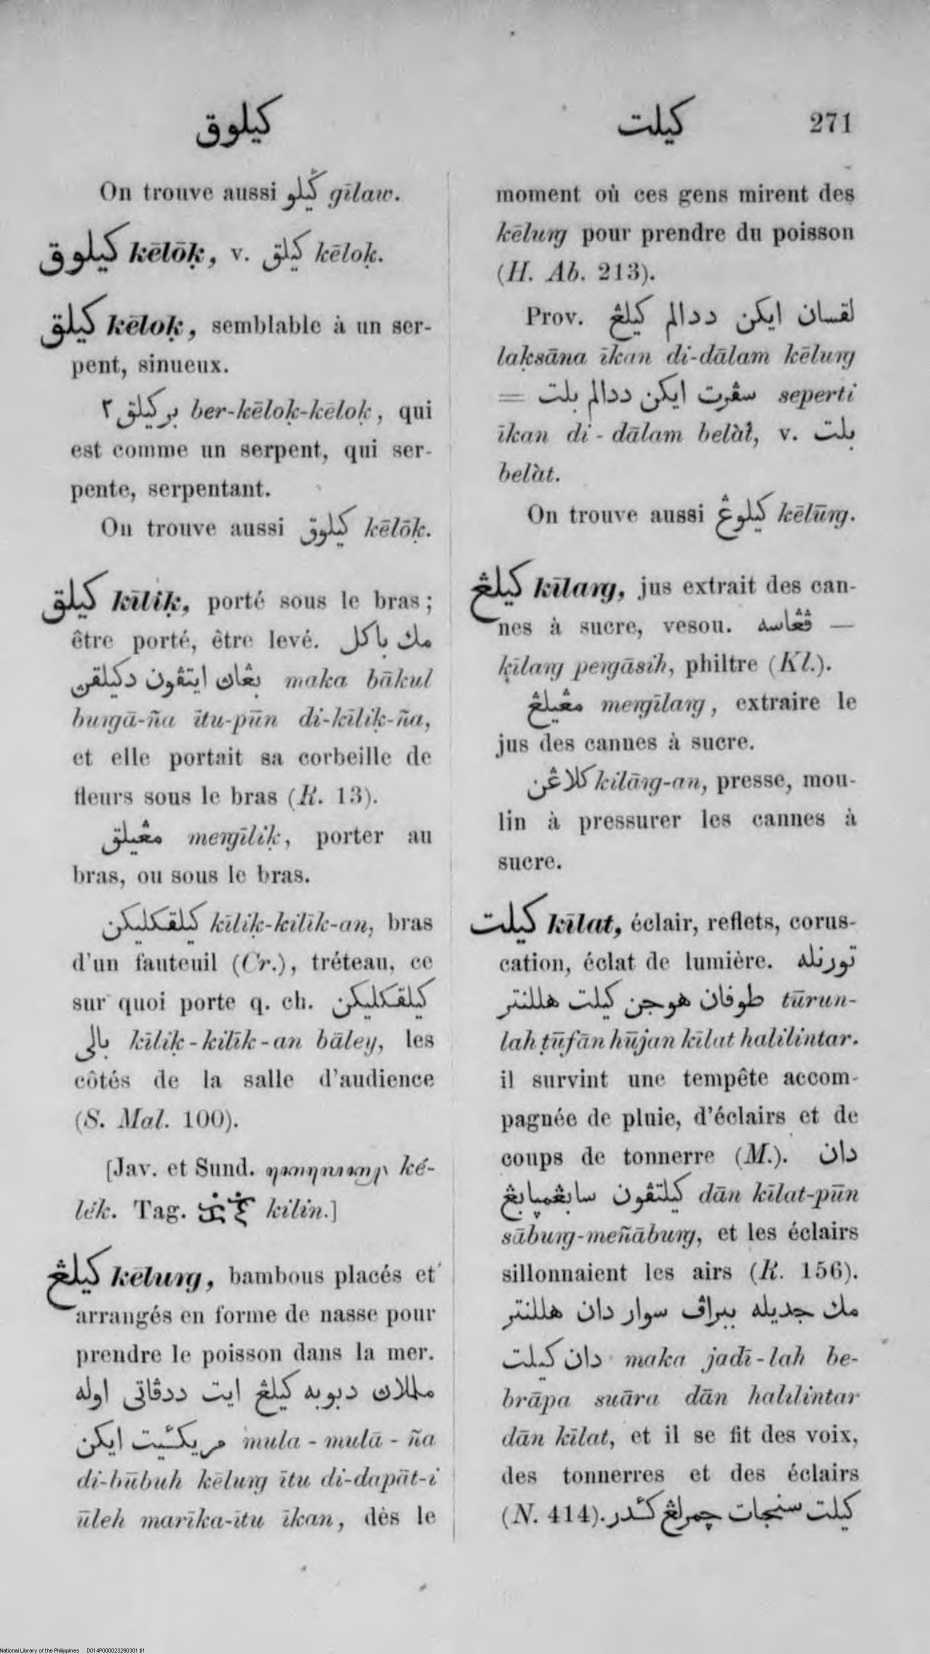 كيلوق
كيلت 271
On trouve aussi ڬيلو gīlaw.
كيلوق kēlōḳ, v. كيلق kēloḳ.
كيلق kēloḳ, semblable à un ser-
pent, sinueux.
بركيلق٢ ber-kēloḳ-kēloḳ, qui
est comme un serpent, qui ser-
pente, serpentant.
On trouve aussi كيلوق kēlōḳ.
كيلق kīliḳ, porté sous le bras;
être porté, être levé. مك باكل
بڠاڽ ايتڤون دكيلقڽ maka bākul
buṅgā-ña ītu-pūn di-kīliḳ-ña,
et elle portait sa corbeille de
fleurs sous le bras (R. 13).
مڠيلق meṅgīliḳ, porter au
bras, ou sous le bras.
كيلقكليكن kīliḳ-kilīk-an, bras
d'un fauteuil (Cr.), tréteau, ce
sur quoi porte q. ch. كيلقكليكن
بالي kīliḳ-kilīk-an bāley, les
côtés de la salle d'audience
(S. Mal. 100).
[Jav. et Sund. ké-
lék. Tag. kilin.]
كيلڠ kēluṅg, bambous placés et
arrangés en forme de nasse pour
prendre le poisson dans la mer.
ململاڽ دبوبه كيلڠ ايت ددڤاتي اوله
مريكئيت ايكن mula-mulā-ña
di-būbuh kēluṅg ītu di-dapāt-i
ūleh marīka-ītu īkan, dès le
moment où ces gens mirent des
kēluṅg pour prendre du poisson
(H. Ab. 213).
Prov. لقسان ايكن ددالم كيلڠ
laksāna īkan di-dālam kēluṅg
= سڤرت ايكن ددالم بلت seperti
īkan di-dālam belàt, v. بلت
belàt.
On trouve aussi كيلوڠ kēlūṅg.
كيلڠ kīlaṅg, jus extrait des can-
nes à sucre, vesou. ڤڠاسه —
ḳīlaṅg peṅgāsih, philtre (Kl.).
مڠيلڠ meṅgīlaṅg, extraire le
jus des cannes à sucre.
كلاڠن kilāṅg-an, presse, mou-
lin à pressurer les cannes à
sucre.
كيلت kīlat, éclair, reflets, corus-
cation, éclat de lumière. تورنله
طوفان هوجن كيلت هللنتر tūrun-
lah ṭūfān hūjan kīlat halilintar.
il survint une tempête accom-
pagnée de pluie, d'éclairs et de
coups de tonnerre (M.). دان
كيلتڤون سابڠمڽابڠ dān kīlat-pūn
sābuṅg-meñābuṅg, et les éclairs
sillonnaient les airs (R. 156).
مك جديله ببراڤ سوار دان هللنتر
دان كيلت maka jadī-lah be-
brāpa suāra dān halilintar
dān kīlat, et il se fit des voix,
des tonnerres et des éclairs
(N. 414). كيلت سنجات چمرلڠ
National Library of the Philippines